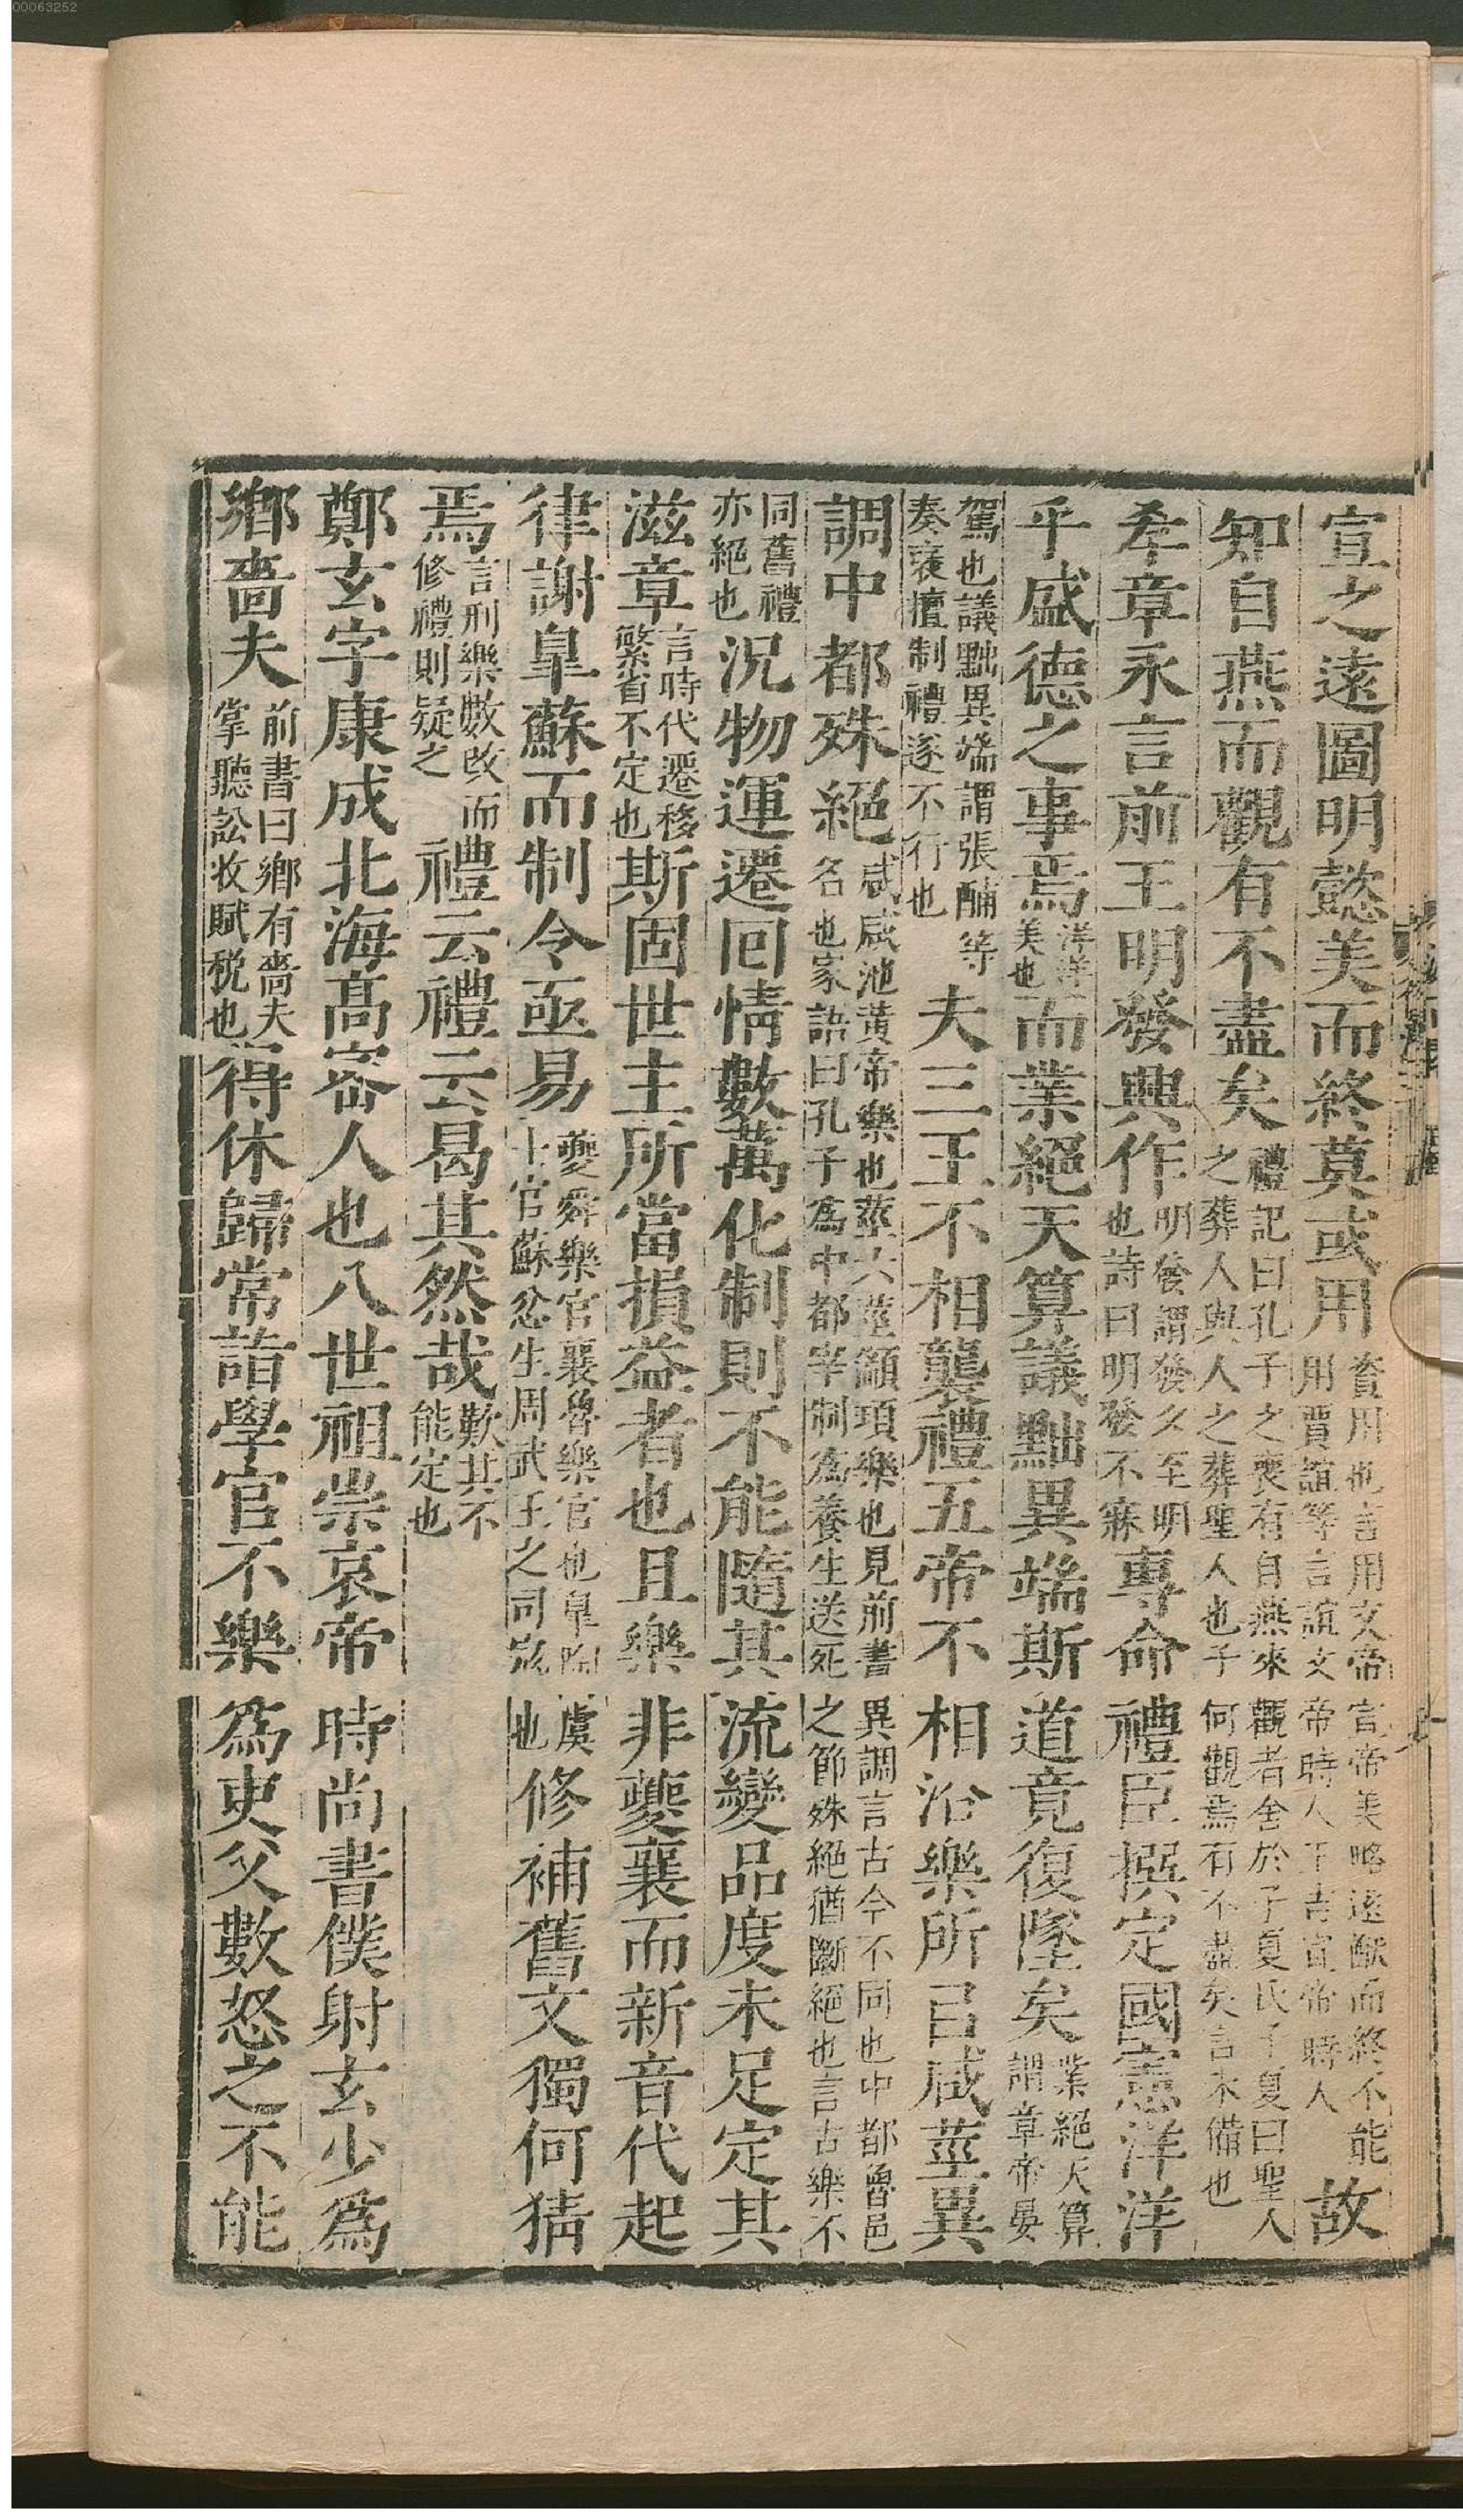 00063252
宣之遠圖明懿美而終莫或用資用也言用文帝宣帝美略遠猷而終不能用賈誼等言誼文帝時人王吉宣帝時人故
知自燕而觀有不盡矣禮記曰孔子之喪有自燕來觀者舍於子夏氏子夏曰聖人之葬人與人之葬聖人也子何觀焉有不盡矣言未備也
孝章永言前王明發興作明發謂發夕至明也詩曰明發不寐專命禮臣撰定國憲洋洋
乎盛德之事焉洋洋美也而業絕天算議黜異端斯道竟復墜矣業絕天算謂章帝晏
駕也議黜異端謂張酺等奏襃擅制禮遂不行也夫三王不相襲禮五帝不相沿樂所㠯咸莖異
調中都殊絕咸咸池黃帝樂也莖六莖顓頊樂也見前書異調言古今不同也中都魯邑名也家語曰孔子爲中都宰制爲養生送死之節殊絕猶斷絕也言古樂不
同舊禮亦絕也況物運遷回情數萬化制則不能隨其流變品度未足定其
滋章言時代遷移繁省不定也斯固世主所當損益者也且樂非夔襄而新音代起
律謝皐蘇而制令亟易夔舜樂官襄魯樂官也皐陶虞士官蘇忿生周武王之司寇也修補舊文獨何猜
焉言刑樂數改而修禮則疑之禮云禮云曷其然哉歎其不能定也
鄭玄字康成北海髙密人也八世祖崇哀帝時尚書僕射玄少爲
鄉嗇夫前書曰鄉有嗇夫掌聽訟收賦稅也得休歸常詣學官不樂爲吏父數怒之不能